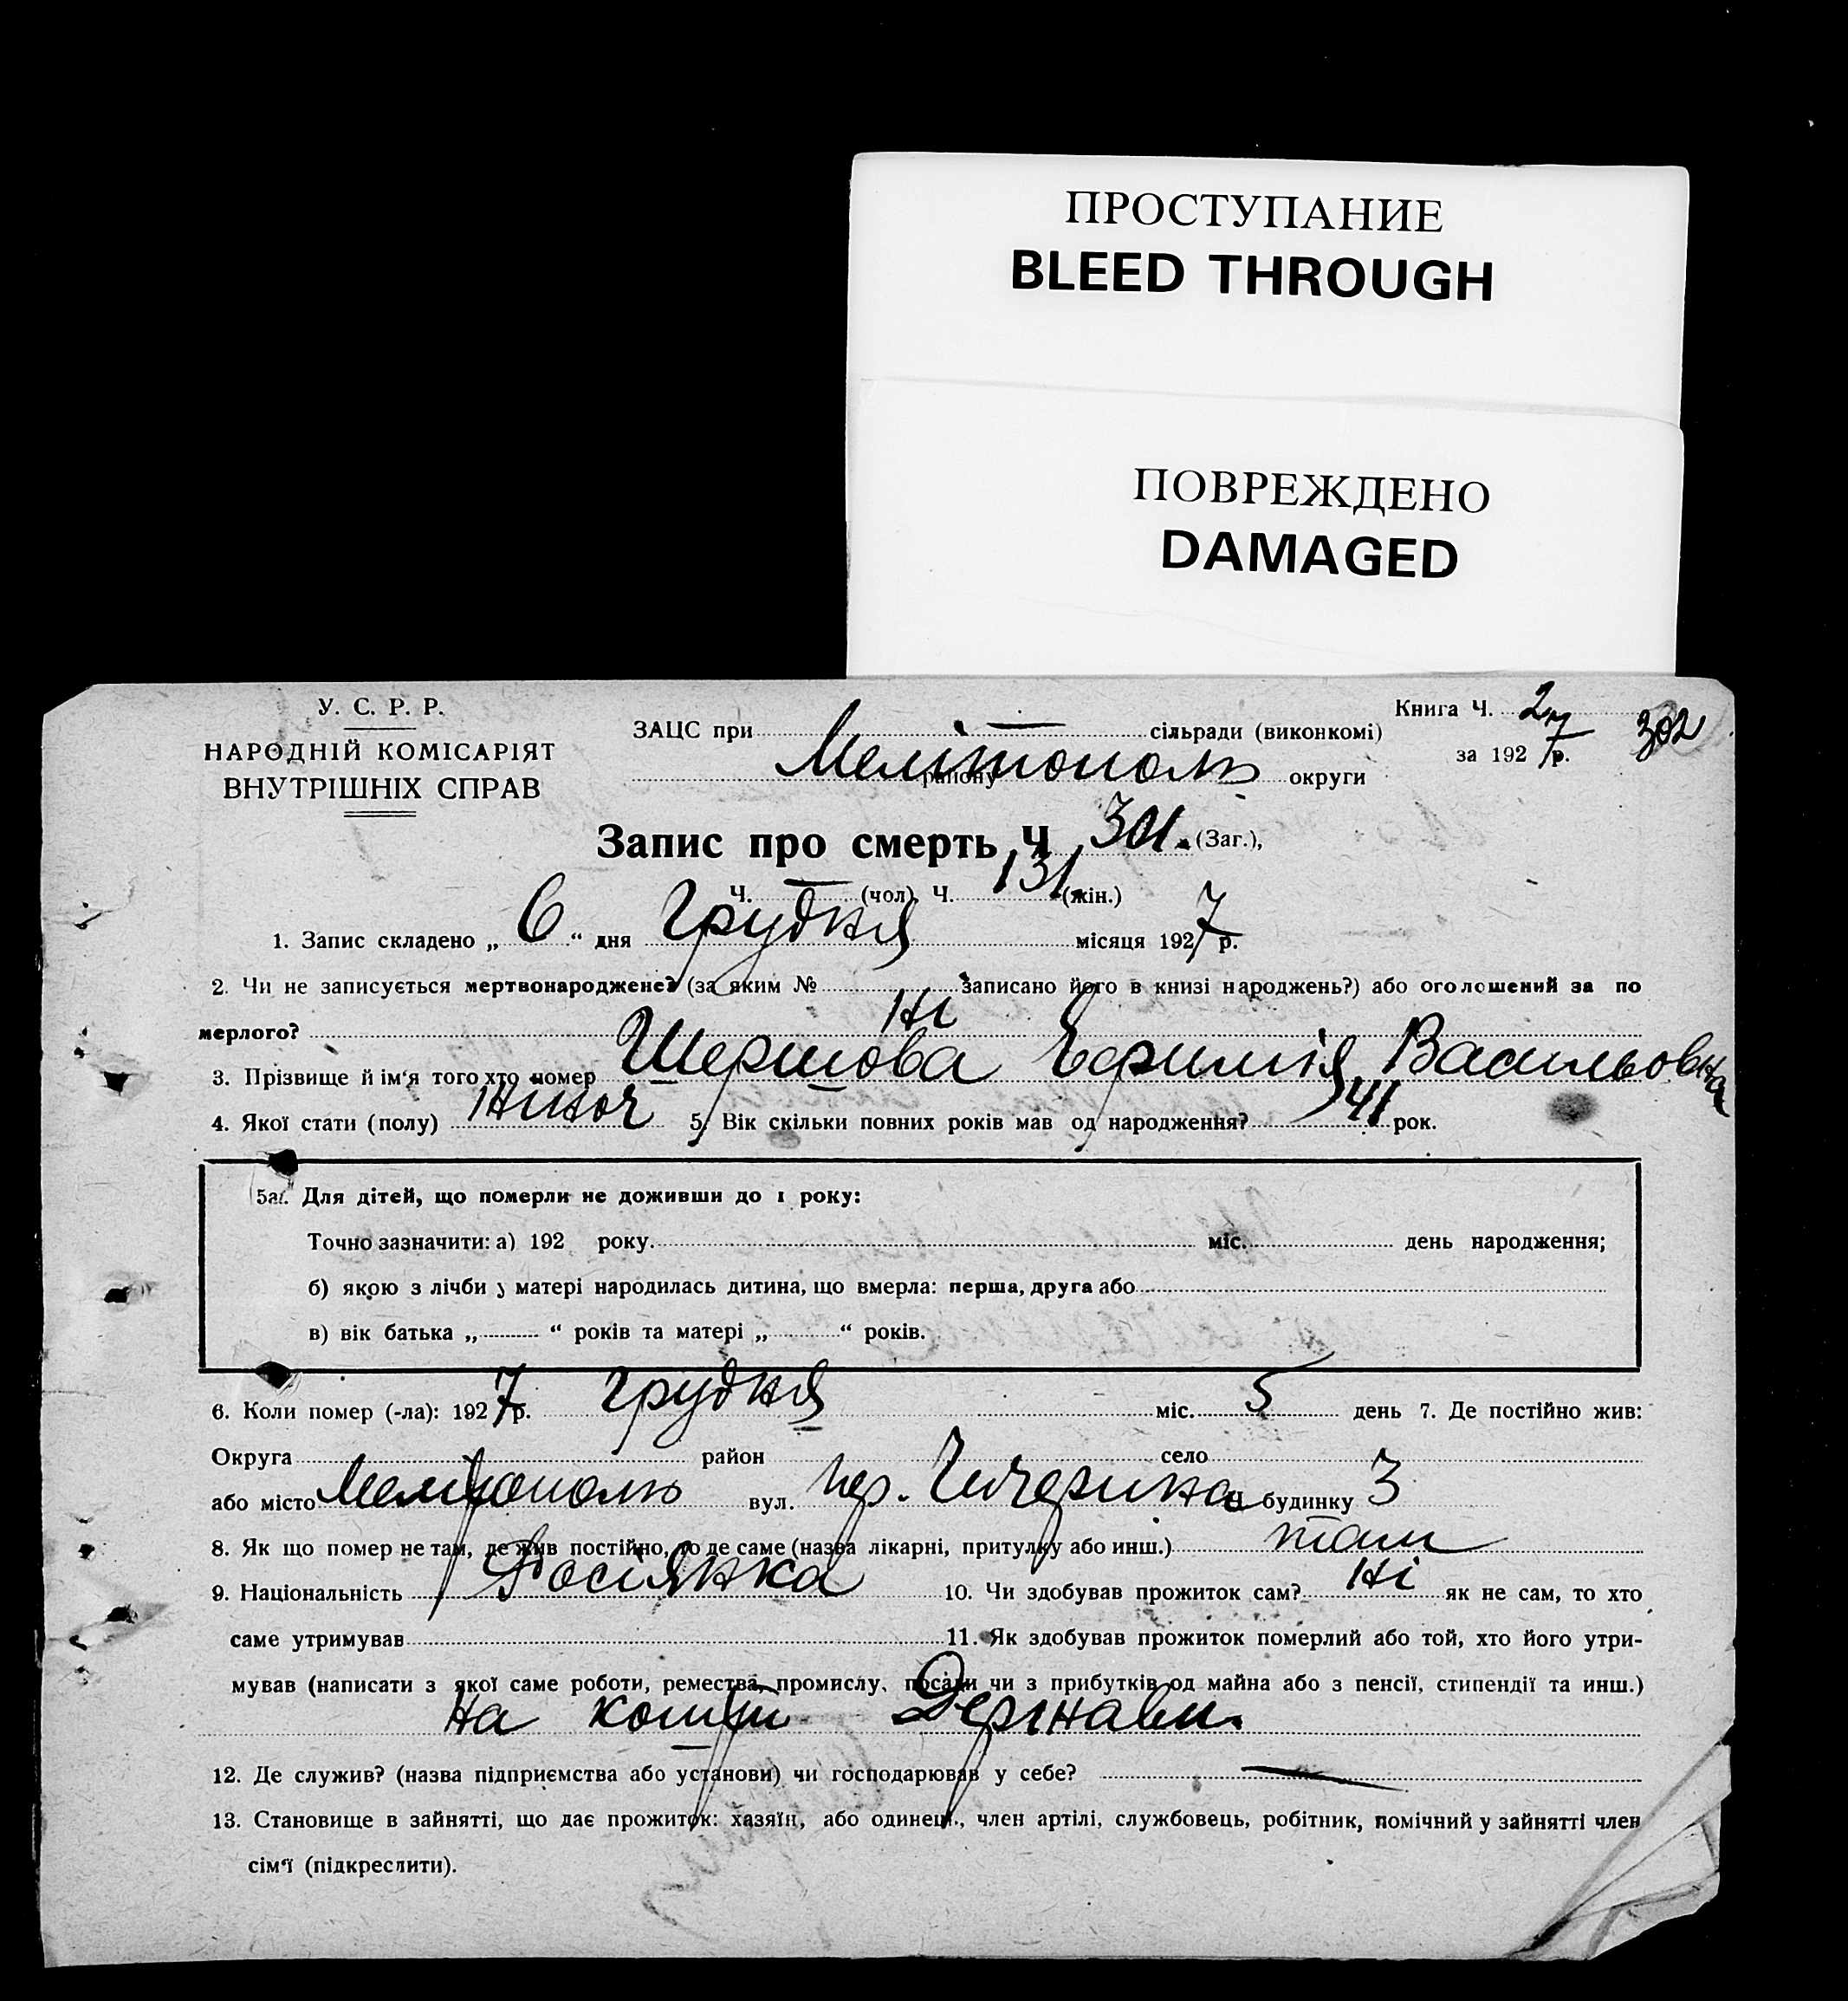 ПРОСТУПАНИЕ
BLEED THROUGH
ПОВРЕЖДЕНО
DAMAGED
У. С. Р. Р.
НАРОДНІЙ КОМІСАРІЯТ
ВНУТРІШНІХ СПРАВ
ЗАЦС при — сільради (виконкомі)
Мелітополь району округи
Книга Ч. 27
за 1927 р.
302
Запис про смерть Ч 301. (Заг.),
Ч. — (чол). Ч. 131 (жін.)
1. Запис складено „ 6 “ дня Грудня місяця 1927 р.
2. Чи не записується мертвонароджене? (за яким № записано його в книзі народжень?) або оголошений за по
мерлого? Ні
3. Прізвище й ім'я того хто помер Васильовна
4. Якої стати (полу) Жіноч 5. Вік скільки повних років мав од народження? 41 рок.
5а. Для дітей, що померли не доживши до 1 року:
Точно зазначити: а) 192 року. міс. день народження;
б) якою з лічби у матері народилась дитина, що вмерла: перша, друга або
в) вік батька „ “ років та матері „ “ років.
6. Коли помер (-ла): 1927 р. Грудня міс. 5 день 7. Де постійно жив:
Округа район село
або місто Мелітополь вул. пер. Чичерина Ч будинку 3
8. Як що помер не там, де жив постійно, то де саме (назва лікарні, притулку або инш.) там
9. Національність Росіянка 10. Чи здобував прожиток сам? Ні як не сам, то хто
саме утримував 11. Як здобував прожиток померлий або той, хто його утри-
мував (написати з якої саме роботи, ремества, промислу, посади чи з прибутків од майна або з пенсії, стипендії та инш.)
На кошти Держави.
12. Де служив? (назва підприємства або установи) чи господарював у себе? —
13. Становище в зайнятті, що дає прожиток: хазяїн, або одинець, член артілі, службовець, робітник, помічний у зайнятті член
сім'ї (підкреслити).